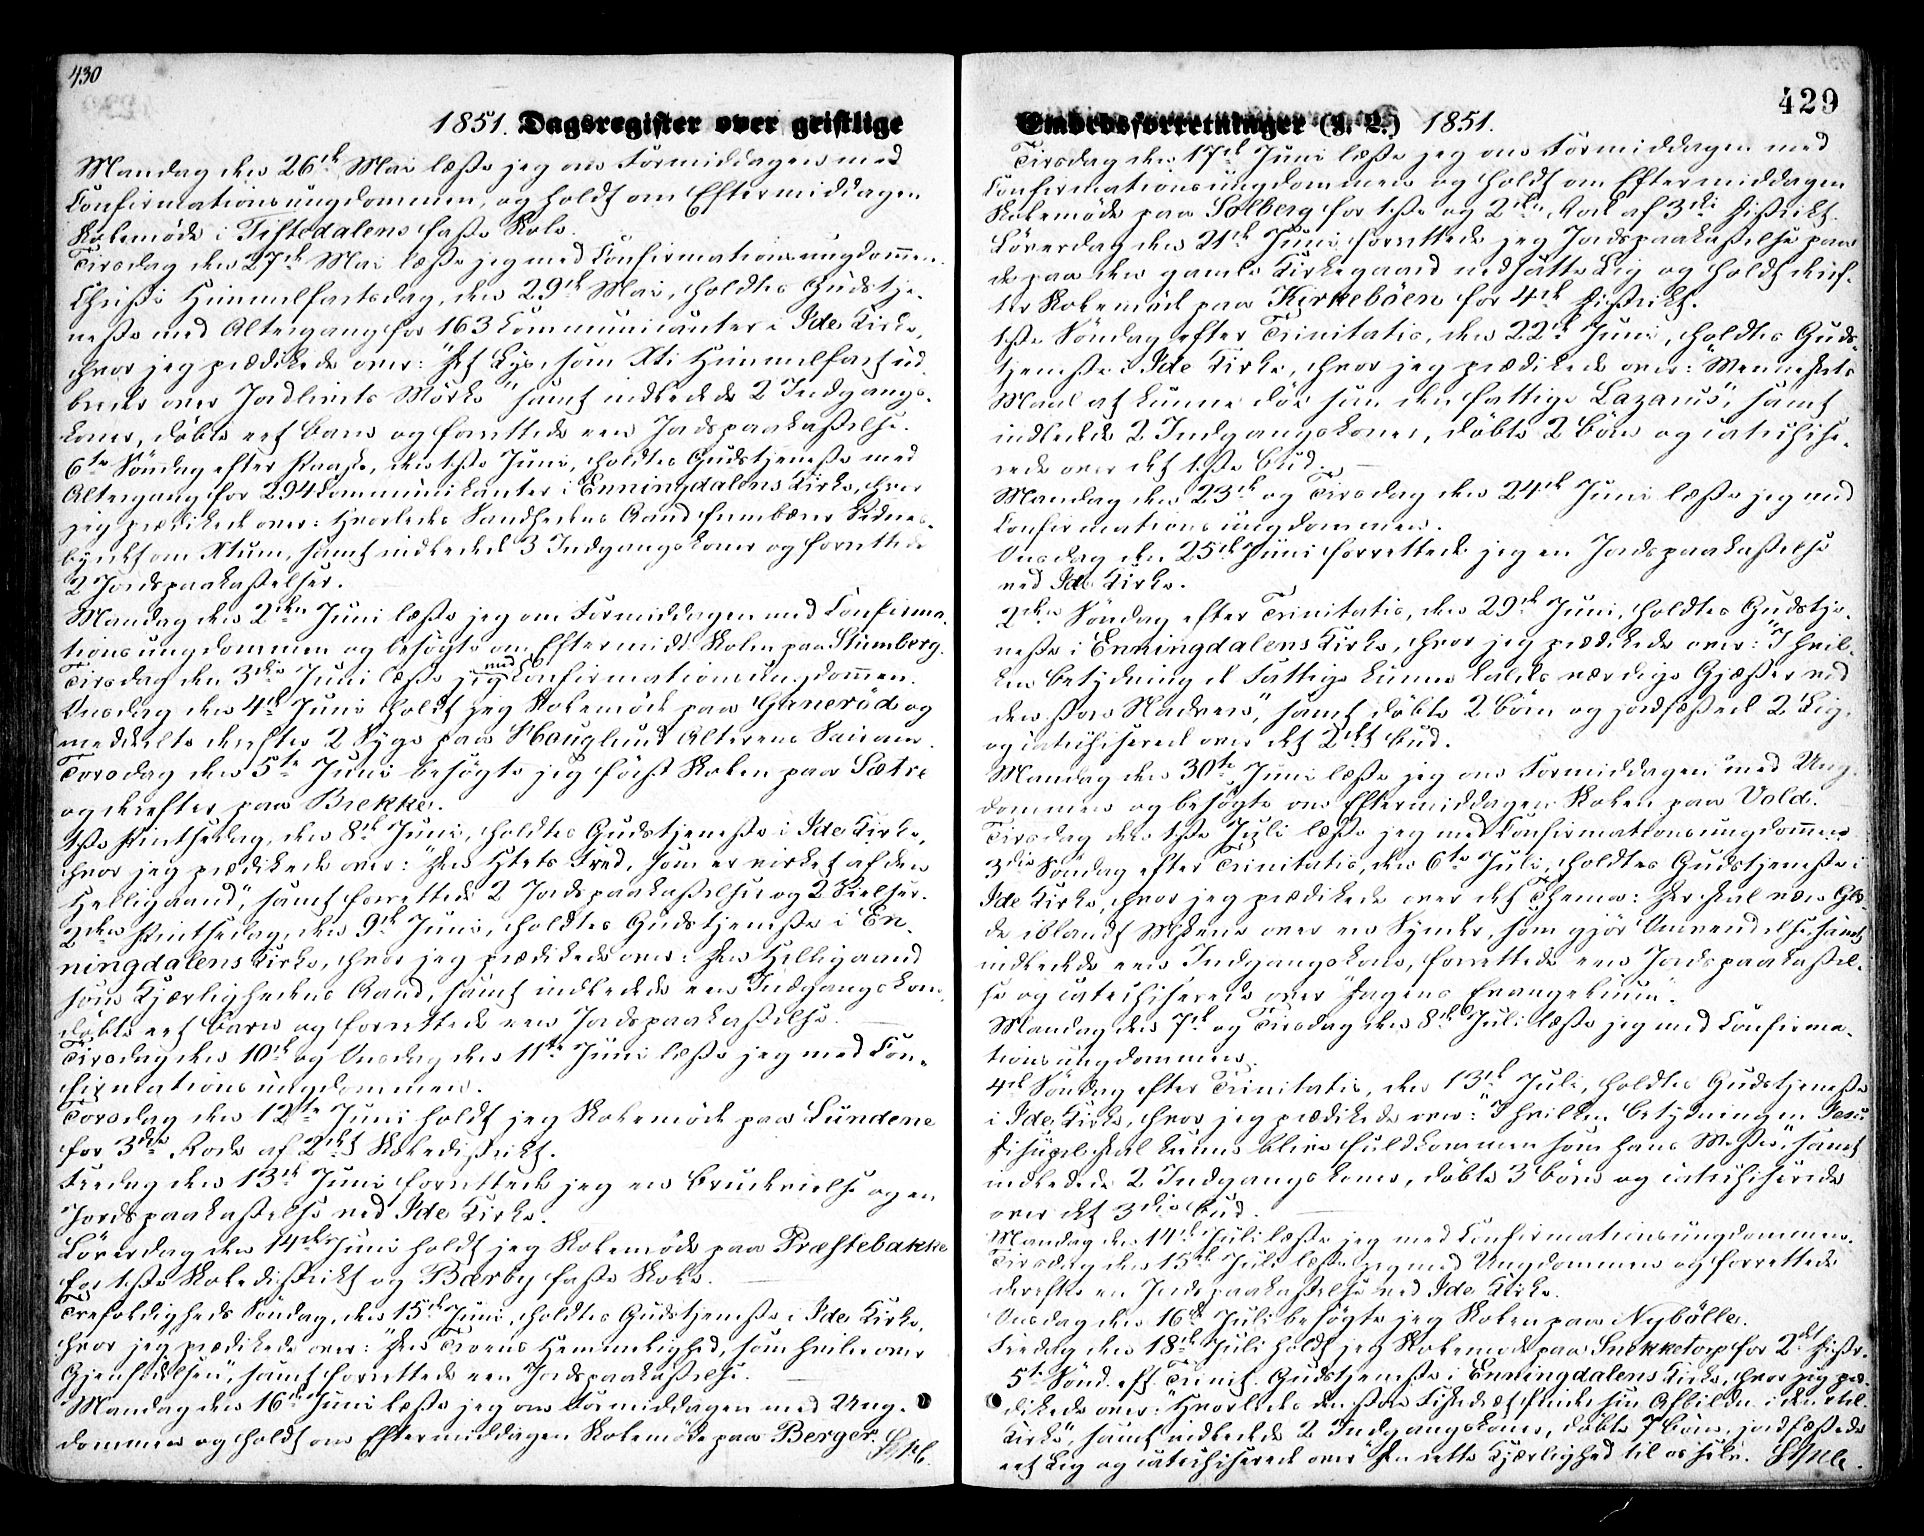 430
1851. Dagsregister over geistlige
Mandag den 26de Mai læste jeg om Formiddagen med
Confirmationsungdommen, og holdt om Eftermiddagen
Skolemøde i Tistedalens faste Skole.
Tirsdag den 27de Mai læste jeg med Confirmationsungdommen.
Christi Himmelfartsdag, den 29de Mai, holdtes Gudstje-
neste med Altergang for 163 Communicanter i Ide Kirke,
hvor jeg prædikede over: "Det Lys, som Xti Himmelfart ud-
breder over Jordlivets Mörke" samt indledede 2 Indgangs-
koner, döbte eet Barn og forrettede een Jordspaakastelse.
6te Söndag efter Paaske, den 1ste Juni, holdtes Gudstjeneste med
Altergang for 294 Communikanter i Enningdalens Kirke, hvor
jeg prædikede over: Hvorledes Sandhedens Aand frembærer Vidnes-
byrdet om Xtum, samt indledede 3 Indgangskoner og forrettede
2 Jordspaakastelser.
Mandag den 2den Juni læste jeg om Formiddagen med Confirma-
tionsungdommen og besögte om Eftermidd. Skolen paa Stumberg.
Tirsdag den 3die Juni læste jeg med Confirmationsungdommen.
Onsdag den 4de Juni holdt jeg Skolemöde paa Ganeröd og
meddelte derefter 2 Syge paa Hauglund Alterens Sacram.
Torsdag den 5te Juni besögte jeg först Skolen paa Sætre
og derefter paa Brekke.
1ste Pintsedag, den 8de Juni, holdtes Gudstjeneste i Ide Kirke,
hvor jeg prædikede over: "Den Hjertets Fred, som er virket af den
Helligaand", samt forrettede 2 Jordspaakastelser og 2 Vielser.
2den Pintsedag, den 9de Juni, holdtes Gudstjeneste i En-
ningdalens Kirke, hvor jeg prædikede over: Den Helligaand
som Kjærlighedens Aand, samt indledede een Indgangskone,
döbte eet Barn og forrettede een Jordspaakastelse.
Tirsdag den 10de og Onsdag den 11te Juni læste jeg med Con-
firmationsungdommen.
Torsdag den 12te Juni holdt jeg Skolemöde paa Lundene
for 3die Rode af 2det Skoledistrikt.
Fredag den 13de Juni forrettede jeg en Brudevielse og en
Jordspaakastelse ved Ide Kirke.
Löverdag den 14de Juni holdt jeg Skolemöde paa Præstebakke
for 1ste Skoledistrikt og Bærby faste Skole.
Trefoldigheds Söndag, den 15de Juni, holdtes Gudstjeneste i Ide Kirke,
hvor jeg prædikede over: "Den Troens Hemmelighed, som hviler over
Gjenfödelsen", samt forrettede een Jordspaakastelse.
Mandag den 16de Juni læste jeg om Formiddagen med Ung-
dommen og holdt om Eftermiddagen Skolemöde paa Berger.
429
Embedsforretninger (s. L.) 1851.
Tirsdag den 17de Juni læste jeg om Formiddagen med
Confirmationsungdommen og holdt om Eftermiddagen
Skolemöde paa Solberg for 1ste og 2den Rode af 3die Distrikt.
Löverdag den 21de Juni forrettede jeg Jordspaakastelse paa
de paa den gamle Kirkegaard nedsatte Lig og holdt deref-
ter Skolemöde paa Kirkeböen for 4de Distrikt.
1ste Söndag efter Trinitatis, den 22de Juni, holdtes Guds-
tjeneste i Ide Kirke, hvor jeg prædikede over: "Menneskets
Maal at kunne döe som den fattige Lazarus", samt
indledede 2 Indgangskoner, döbte 2 Börn og catechise-
rede over det 1ste Bud.
Mandag den 23de og Tirsdag den 24de Juni læste jeg med
Confirmationsungdommen.
Onsdag den 25de Juni forrettede jeg en Jordspaakastelse
ved Ide Kirke.
2den Söndag efter Trinitatis, den 29de Juni, holdtes Gudstje-
neste i Enningdalens Kirke, hvor jeg prædikede over: "I hvil-
ken Betydning de Fattige kunne kaldes værdige Gjæster ved
den store Nadvere", samt döbte 2 Börn og jordfæstede 2 Lig,
og catechiserede over det 2det Bud.
Mandag den 30te Juni læste jeg om Formiddagen med Ung-
dommen og besögte om Eftermiddagen Skolen paa Vold.
Tirsdag den 1ste Juli læste jeg med Confirmationsungdommen.
3die Söndag efter Trinitatis, den 6te Juli, holdtes Gudstjeneste i
Ide Kirke, hvor jeg prædikede over det Thema: Der skal være Glæ-
de iblandt over en Synder, som gjör Omvendelse, samt
indledede een Indgangskone, forrettede een Jordspaakastel-
se og catechiserede over Dagens Evangelium.
Mandag den 7de og Tirsdag den 8de Juli læste jeg med Confirma-
tionsungdommen.
4de Söndag efter Trinitatis, den 13de Juli, holdtes Gudstjeneste
i Ide Kirke, hvor jeg prædikede over: "I hvilken Betydning en Jesu
Discipel skal kunne blive fuldkommen som hans Mester", samt
indledede 2 Indgangskoner, döbte 3 Börn og catechiserede
over det 3die Bud.
Mandag den 14de Juli læste jeg med Confirmationsungdommen.
Tirsdag den 15de Juli læste jeg med Ungdommen og forrettede
derefter en Jordspaakastelse ved Ide Kirke.
Onsdag den 16de Juli besögte jeg Skolen paa Nybölle.
Fredag den 18de Juli holdt jeg Skolemöde paa Snekketorp for 2det Distr.
5te Sönd. eft. Trinit. Gudstjeneste i Enningdalens Kirke, hvor jeg præ-
dikede over: "Hvorledes den store Fiskedræt finder sin Afbildn. i den
Kirke", samt indledede 2 Indgangskoner, döbte 7 Börn, jordfæstede
eet Lig og catechiserede over den rette Kjærlighed til os selv.